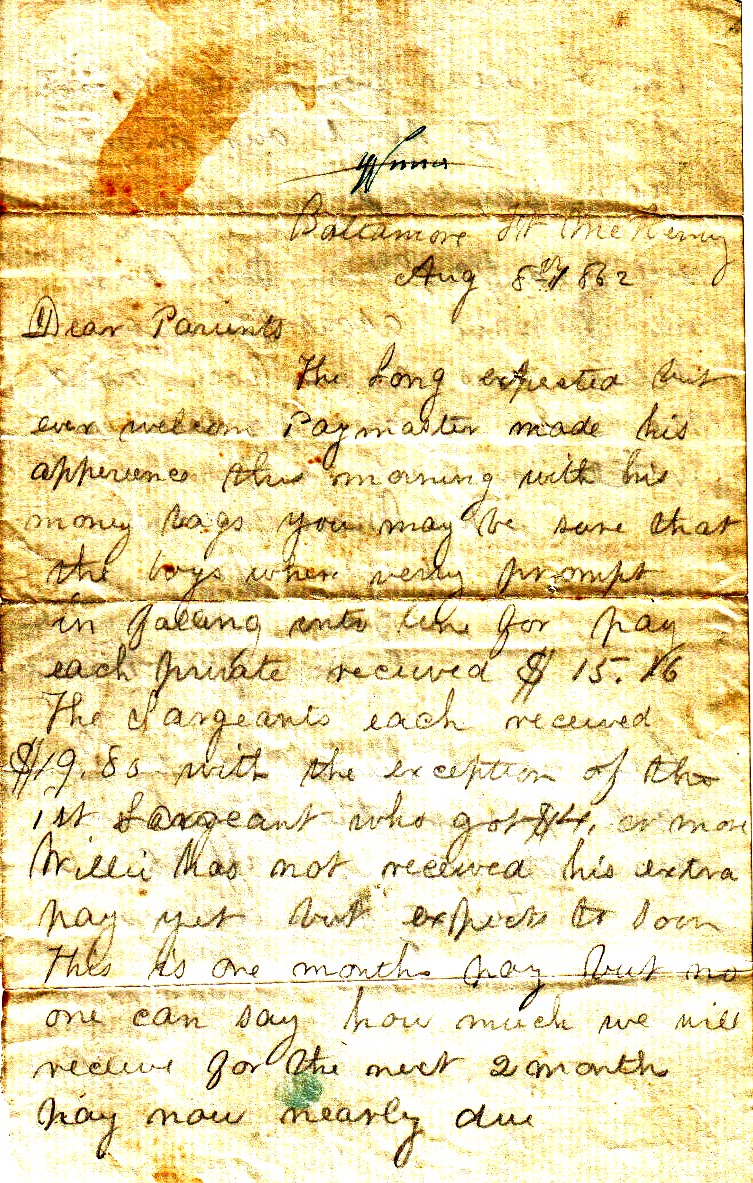 Baltamore Ft McHenry
Aug 8th 1862
Dear Parients
The Long expected but
ever welcom Paymaster made his
apperience this morning with his
money bags you may be sure that
the boys wher verry prompt
in falling into line for pay
each private received $ 15.16
The Sargeants each received
$19.80 with the exception of the
1st Sargeant who got $4. or more
Willie has not received his extra
pay yet but expects to soon
This is one months pay but no
one can say how much we will
receive for the next 2 months
pay now nearly due